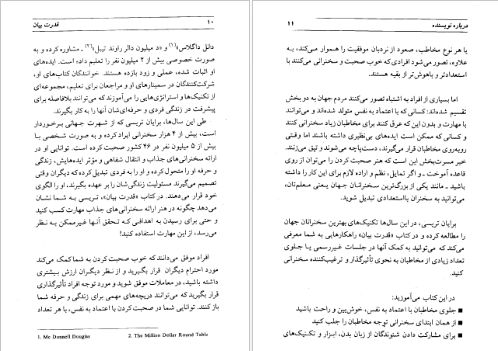 ۱۰ قدرت بیان
دانل داگلاس(۱) و «د میلیون دالر راوند تیبل»(۲)ـ مشاوره کرده و به
صورت خصوصی بیش از ۲ میلیون نفر را تعلیم داده است. ایده‌های
او اثبات شده، عملی و زود بازده هستند. خوانندگان کتاب‌های او،
شرکت‌کنندگان در سمینارهای او و مراجعان برای تعلیم، مجموعه‌ای
از تکنیک‌ها و استراتژی‌هایی را می‌آموزند که می‌توانند بلافاصله برای
پیشرفت در زندگی فردی و حرفه‌ای‌شان آنها را به کار بگیرند.
طی این سال‌ها، برایان تریسی که از شهرت جهانی برخوردار
است، بیش از ۴ هزار سخنرانی ایراد کرده و به صورت شخصی با
بیش از ۵ میلیون نفر در ۴۶ کشور صحبت کرده است. توانایی او در
ارائه سخنرانی‌های جذاب و انتقال شفاهی و مؤثر ایده‌هایش، زندگی
و حرفه او را متحول کرده و او را به فردی تبدیل کرده که دیگران وقتی
تصمیم می‌گیرند مسئولیت زندگی‌شان را بر عهده بگیرند، او را الگوی
خود قرار می‌دهند. در کتاب «قدرت بیان»، تریسی به شما نشان
می‌دهد چگونه در هنر ارائه سخنرانی های جذاب مهارت کسب کنید
و حتی برای رسیدن به اهدافی که تحقق آنها غیرممکن به نظر
می‌رسد، از این مهارت استفاده کنید!
افراد موفق می‌دانند که خوب صحبت کردن به شما کمک می‌کند
مورد احترام دیگران قرار بگیرید و از نظر دیگران ارزش بیشتری
داشته باشید، در معاملات موفق شوید و مورد توجه افراد تأثیرگذاری
قرار بگیرید که می‌توانند دریچه‌های مهمی برای زندگی و حرفه شما
باز کنند. توانایی شما در صحبت کردن با اعتماد به نفس، با هر تعداد
1. Mc Donnell Douglas 2. The Million Dollar Round Table
درباره نویسنده ۱۱
یا هر نوع مخاطب، صعود از نردبان موفقیت را هموار می‌کند، به
علاوه، تصور می‌شود افرادی که خوب صحبت و سخنرانی می‌کنند با
استعدادتر و باهوش‌تر از بقیه هستند.
اما بسیاری از افراد به اشتباه تصور می‌کنند مردم جهان به دو بخش
تقسیم شده‌اند: کسانی که با اعتماد به نفس متولد شده‌اند و می‌توانند
با مهارت و بدون این که عرق کنند برای مخاطبان زیاد سخنرانی کنند
و کسانی که ممکن است ایده‌های بی‌نظیری داشته باشند اما وقتی
روبه‌روی مخاطبان قرار می‌گیرند، دست‌پاچه می‌شوند و تپق می‌زنند.
خبر مسرت‌بخش این است که هنر صحبت کردن را می‌توان از روی
قاعده آموخت ـ و اگر تمایل، نظم و اراده لازم برای این کار را داشته
باشید ـ مانند یکی از بزرگ‌ترین سخنرانان جهان یعنی معلم‌تان،
می‌توانید به سخنران بااستعدادی تبدیل شوید.
برایان تریسی، در این سال‌ها تکنیک‌های بهترین سخنرانان جهان
را مطالعه کرده و در کتاب «قدرت بیان» راهکارهایی به شما معرفی
می‌کند که می‌توانید به کمک آنها در جلسات غیررسمی یا جلوی
تعداد زیادی از مخاطبان به نحوی تأثیرگذار و ترغیب‌کننده سخنرانی
کنید.
در این کتاب می‌آموزید:
■ جلوی مخاطبان با اعتماد به نفس، خوش‌بین و راحت باشید
■ از همان ابتدای سخنرانی توجه مخاطبان را جلب کنید
■ برای مشارکت دادن شنوندگان از زبان بدن، ابزار و تکنیک‌های